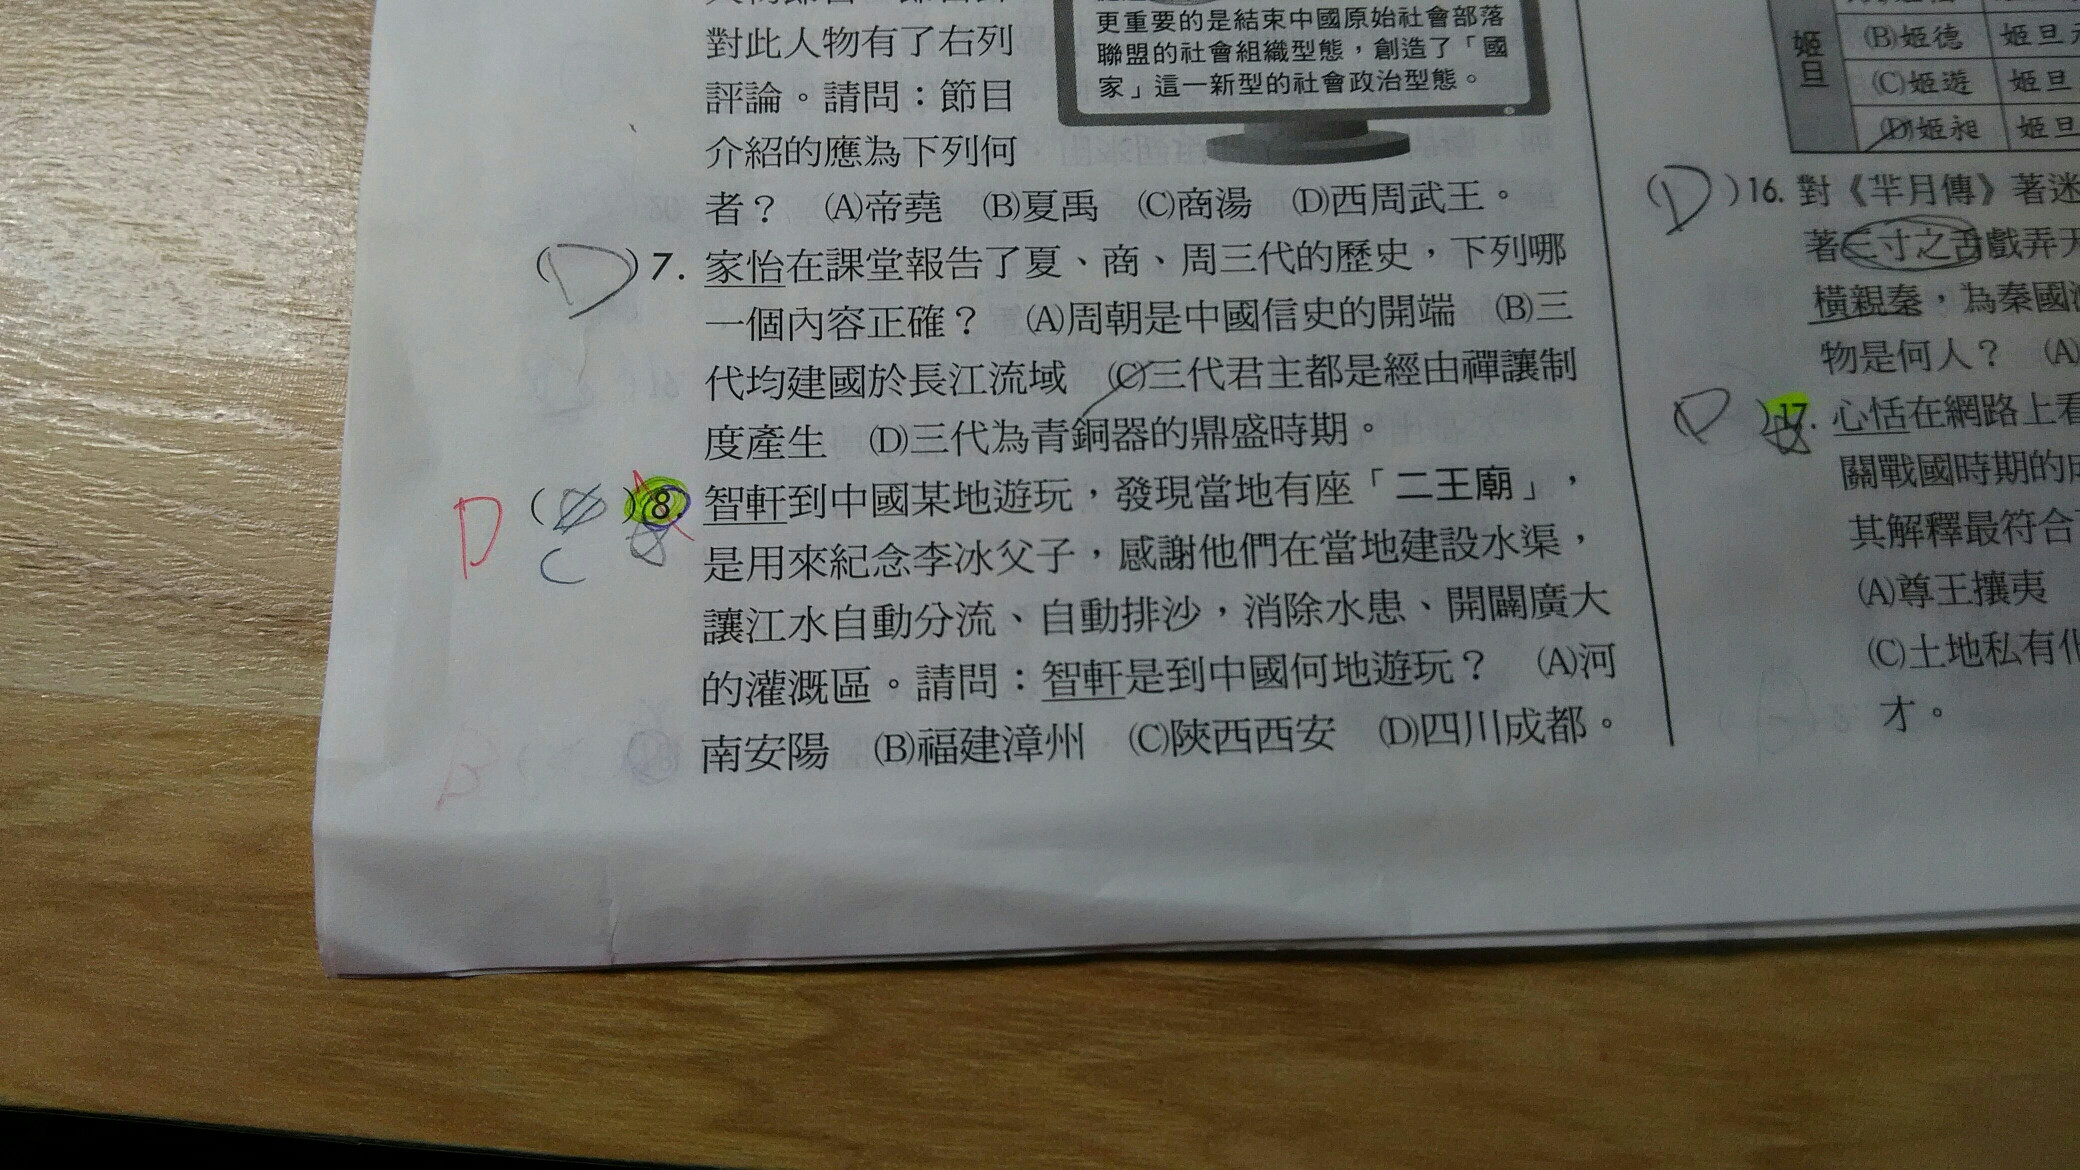 對此人物有了右列
評論。請問：節目
介紹的應為下列何
者？ (A)帝堯 (B)夏禹 (C)商湯 (D)西周武王。
更重要的是結束中國原始社會部落
聯盟的社會組織型態，創造了「國
家」這一新型的社會政治型態。
(D)7. 家怡在課堂報告了夏、商、周三代的歷史，下列哪
一個內容正確？ (A)周朝是中國信史的開端 (B)三
代均建國於長江流域 (C)三代君主都是經由禪讓制
度產生 (D)三代為青銅器的鼎盛時期。
D ( )8. 智軒到中國某地遊玩，發現當地有座「二王廟」，
C
是用來紀念李冰父子，感謝他們在當地建設水渠，
讓江水自動分流、自動排沙，消除水患、開闢廣大
的灌溉區。請問：智軒是到中國何地遊玩？ (A)河
南安陽 (B)福建漳州 (C)陝西西安 (D)四川成都。
姬旦
(B)姬德 姬旦
(C)姬遊 姬旦
(D)姬昶 姬旦
(D)16. 對《羋月傳》著迷
著三寸之舌戲弄天
橫親秦，為秦國
物是何人？ (A)
(D)17. 心恬在網路上看
關戰國時期的
其解釋最符合
(A)尊王攘夷
(C)土地私有化
才。